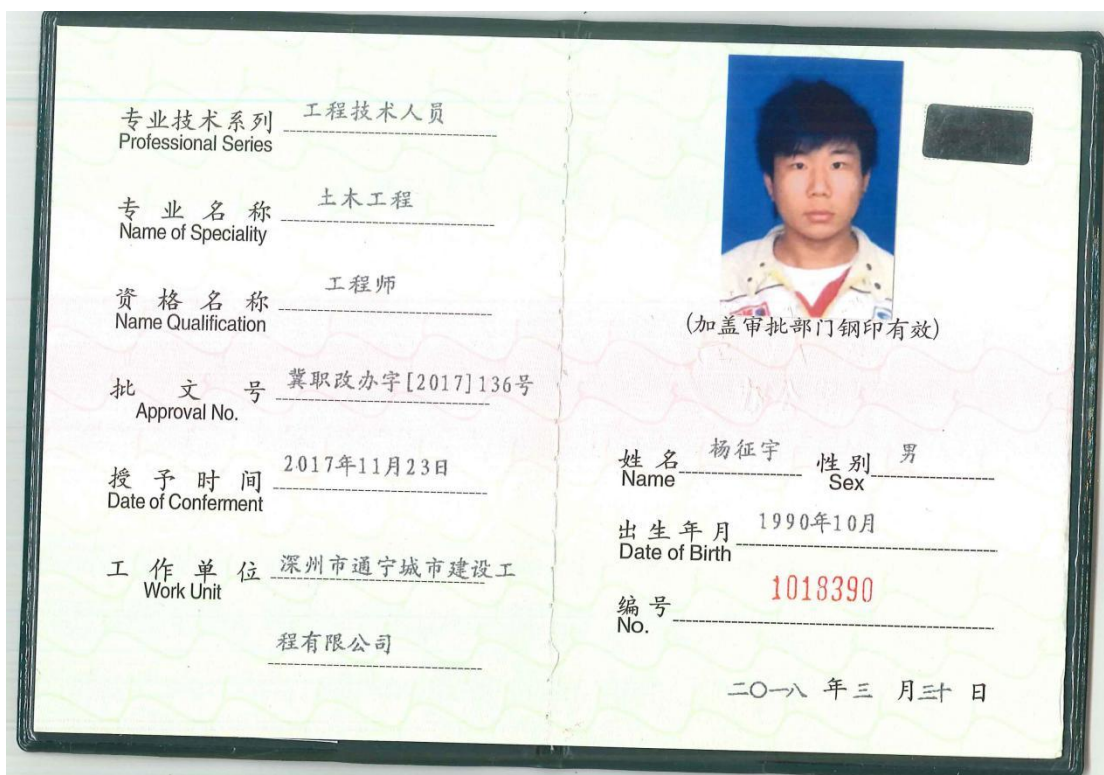 专业技术系列 工程技术人员
Professional Series
专业名称 土木工程
Name of Speciality
资格名称 工程师
Name Qualification
批文号 冀职改办字[2017]136号
Approval No.
授予时间 2017年11月23日
Date of Conferment
工作单位 深州市通宁城市建设工
Work Unit
程有限公司
(加盖审批部门钢印有效)
办公
姓名 杨征宇 性别 男
Name Sex
出生年月 1990年10月
Date of Birth
编号 1018390
No.
二〇一八 年 三 月 三十 日